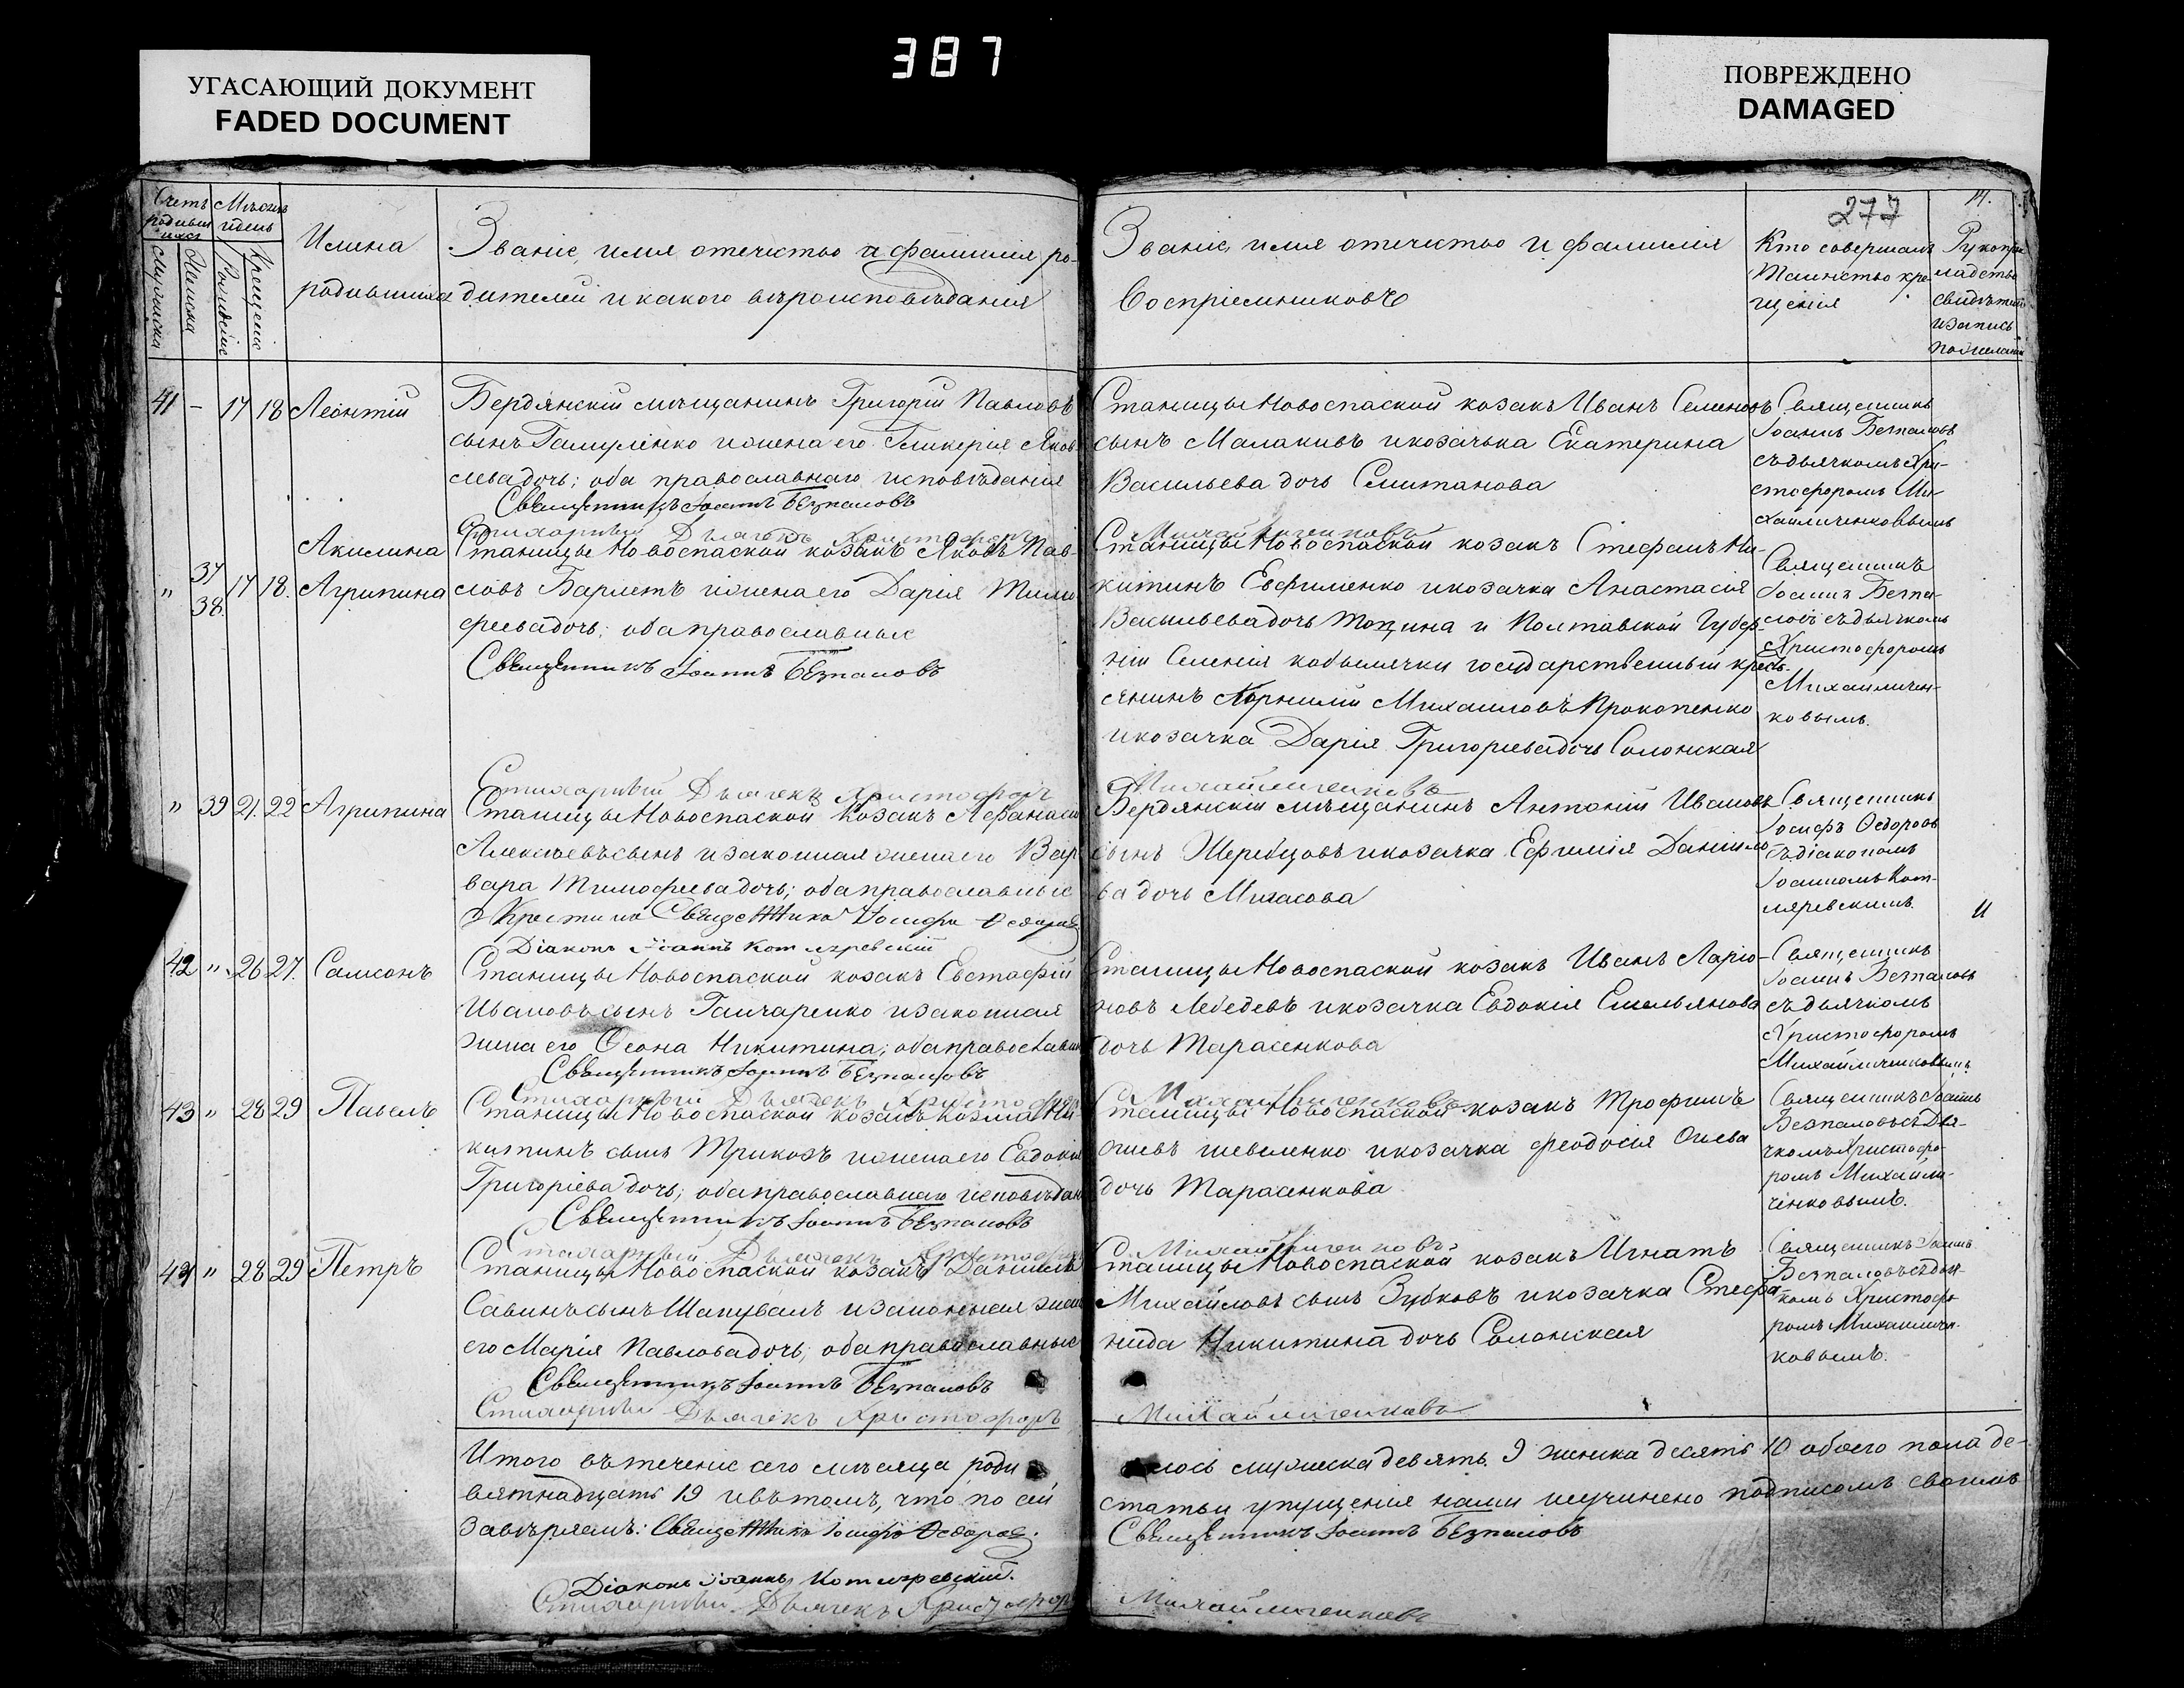 387
УГАСАЮЩИЙ ДОКУМЕНТ
FADED DOCUMENT
ПОВРЕЖДЕНО
DAMAGED
Счетъ родившихся
Мужеска
Женска
Мѣсяцъ и день
Рожденіе
Крещеніе
Имена
родившихся
Званіе, имя отечество и фамилія ро-
дителей и какого вѣроисповѣданія
Званіе, имя отечество и фамилія
Воспріемниковъ
277
Кто совершалъ
таинство кре-
щенія
14.
Рукопри-
кладство
свидѣтелей
и запись
по желанію
41 – 17 18 Леонтій
Бердянскій мѣщанинъ Григорій Павловъ
сынъ и жена его Гликерія Яков-
лева дочь; оба православнаго исповѣданія
Священникъ Іоаннъ Безпаловъ
Стихарный Дьячекъ Христофоръ
Станицы Новоспаской козакъ Иванъ Семеновъ
сынъ Малакивъ и козачька Екатерина
Васильева дочь
Михайличенковъ
Священникъ
Іоаннъ Безпаловъ
съ дьячкомъ Хри-
стофоромъ Ми-
хайличенковымъ
" 37 38 17 18. Акилина
Агрипина
Станицы Новоспаской козакъ Яковъ Пав-
ловъ и жена его Дарія Тимо-
феева дочь; оба православные
Священникъ Іоаннъ Безпаловъ
Стихарный Дьячекъ Христофоръ
Станицы Новоспаской козакъ Стефанъ Ни-
китинъ Евфименко и козачка Анастасія
Васильева дочь и Полтавской Губер-
ніи Селенія кобылячки государственный кресть-
янинъ Корнилій Михаиловъ Прокопенко
и козачка Дарія Григорьева дочь Солонская
Михайличенковъ
Священникъ
Іоаннъ Безпа-
ловъ съ дьячкомъ
Христофоромъ
Михаиличен-
ковымъ.
" 39 21. 22 Агрипина
Станицы Новоспаской козакъ Афанасій
Алексѣевъ сынъ и законная жена его Вар-
вара Тимофеева дочь; оба православные
Крестилъ Священникъ Іосифъ Федоровъ
Діаконъ Іоаннъ Котляревскій
Бердянскій мѣщанинъ Антоній Ивановъ
сынъ Жеребцовъ и козачка Ефимія Данило-
ва дочь
Священникъ
Іосифъ Федоровъ
съ діакономъ
Іоанномъ Кот-
ляревскимъ.
42 " 26 27. Самсонъ
Станицы Новоспаской козакъ Евстафій
Ивановъ сынъ Ганчаренко и законная
жена его Никитина; оба православные
Священникъ Іоаннъ Безпаловъ
Стихарный Дьячекъ Христофоръ
Станицы Новоспаской козакъ Иванъ Ларіо-
новъ Лебедевъ и козачка Евдокія Емельянова
дочь Тарасенкова
Михайличенковъ
Священникъ
Іоаннъ Безпаловъ
съ дьячкомъ
Христофоромъ
Михайличенковымъ
43 " 28 29 Павелъ
Станицы Новоспаской козакъ Козма Ни-
китинъ сынъ Трикозъ и жена его Евдокія
Григоріева дочь; оба православнаго исповѣданія
Священникъ Іоаннъ Безпаловъ
Стихарный Дьячекъ Христофоръ
Станицы Новоспаской козакъ Трофимъ
шевеленко и козачка феодосія
дочь Тарасенкова
Михайличенковъ
Священникъ Іоаннъ
Безпаловъ съ Дья-
чкомъ Христофо-
ромъ Михайли-
ченковымъ.
44 " 28 29 Петръ
Станицы Новоспаской козакъ Даніилъ
Савинъ сынъ Шаповалъ и законная жена
его Марія Павлова дочь; оба православные
Священникъ Іоаннъ Безпаловъ
Стихарный Дьячекъ Христофоръ
Станицы Новоспаской козакъ Игнатъ
Михайловъ сынъ Зубковъ и козачка Стефа-
нида Никитина дочь Солонская
Михайличенковъ
Священникъ Іоаннъ
Безпаловъ съ дьяч-
комъ Христофо-
ромъ Михаиличен-
ковымъ.
Итого въ теченіе сего мѣсяца роди лось мужеска девять 9 женска десять 10 обоего пола де-
вятнадцать 19 и въ томъ, что по сей статьи упущенія нами неучинено подписомъ своимъ
завѣряемъ: Священникъ Іосифъ Федоровъ. Священникъ Іоаннъ Безпаловъ
Діаконъ Іоаннъ Котляревскій.
Стихарный Дьячекъ Христофоръ Михайличенковъ